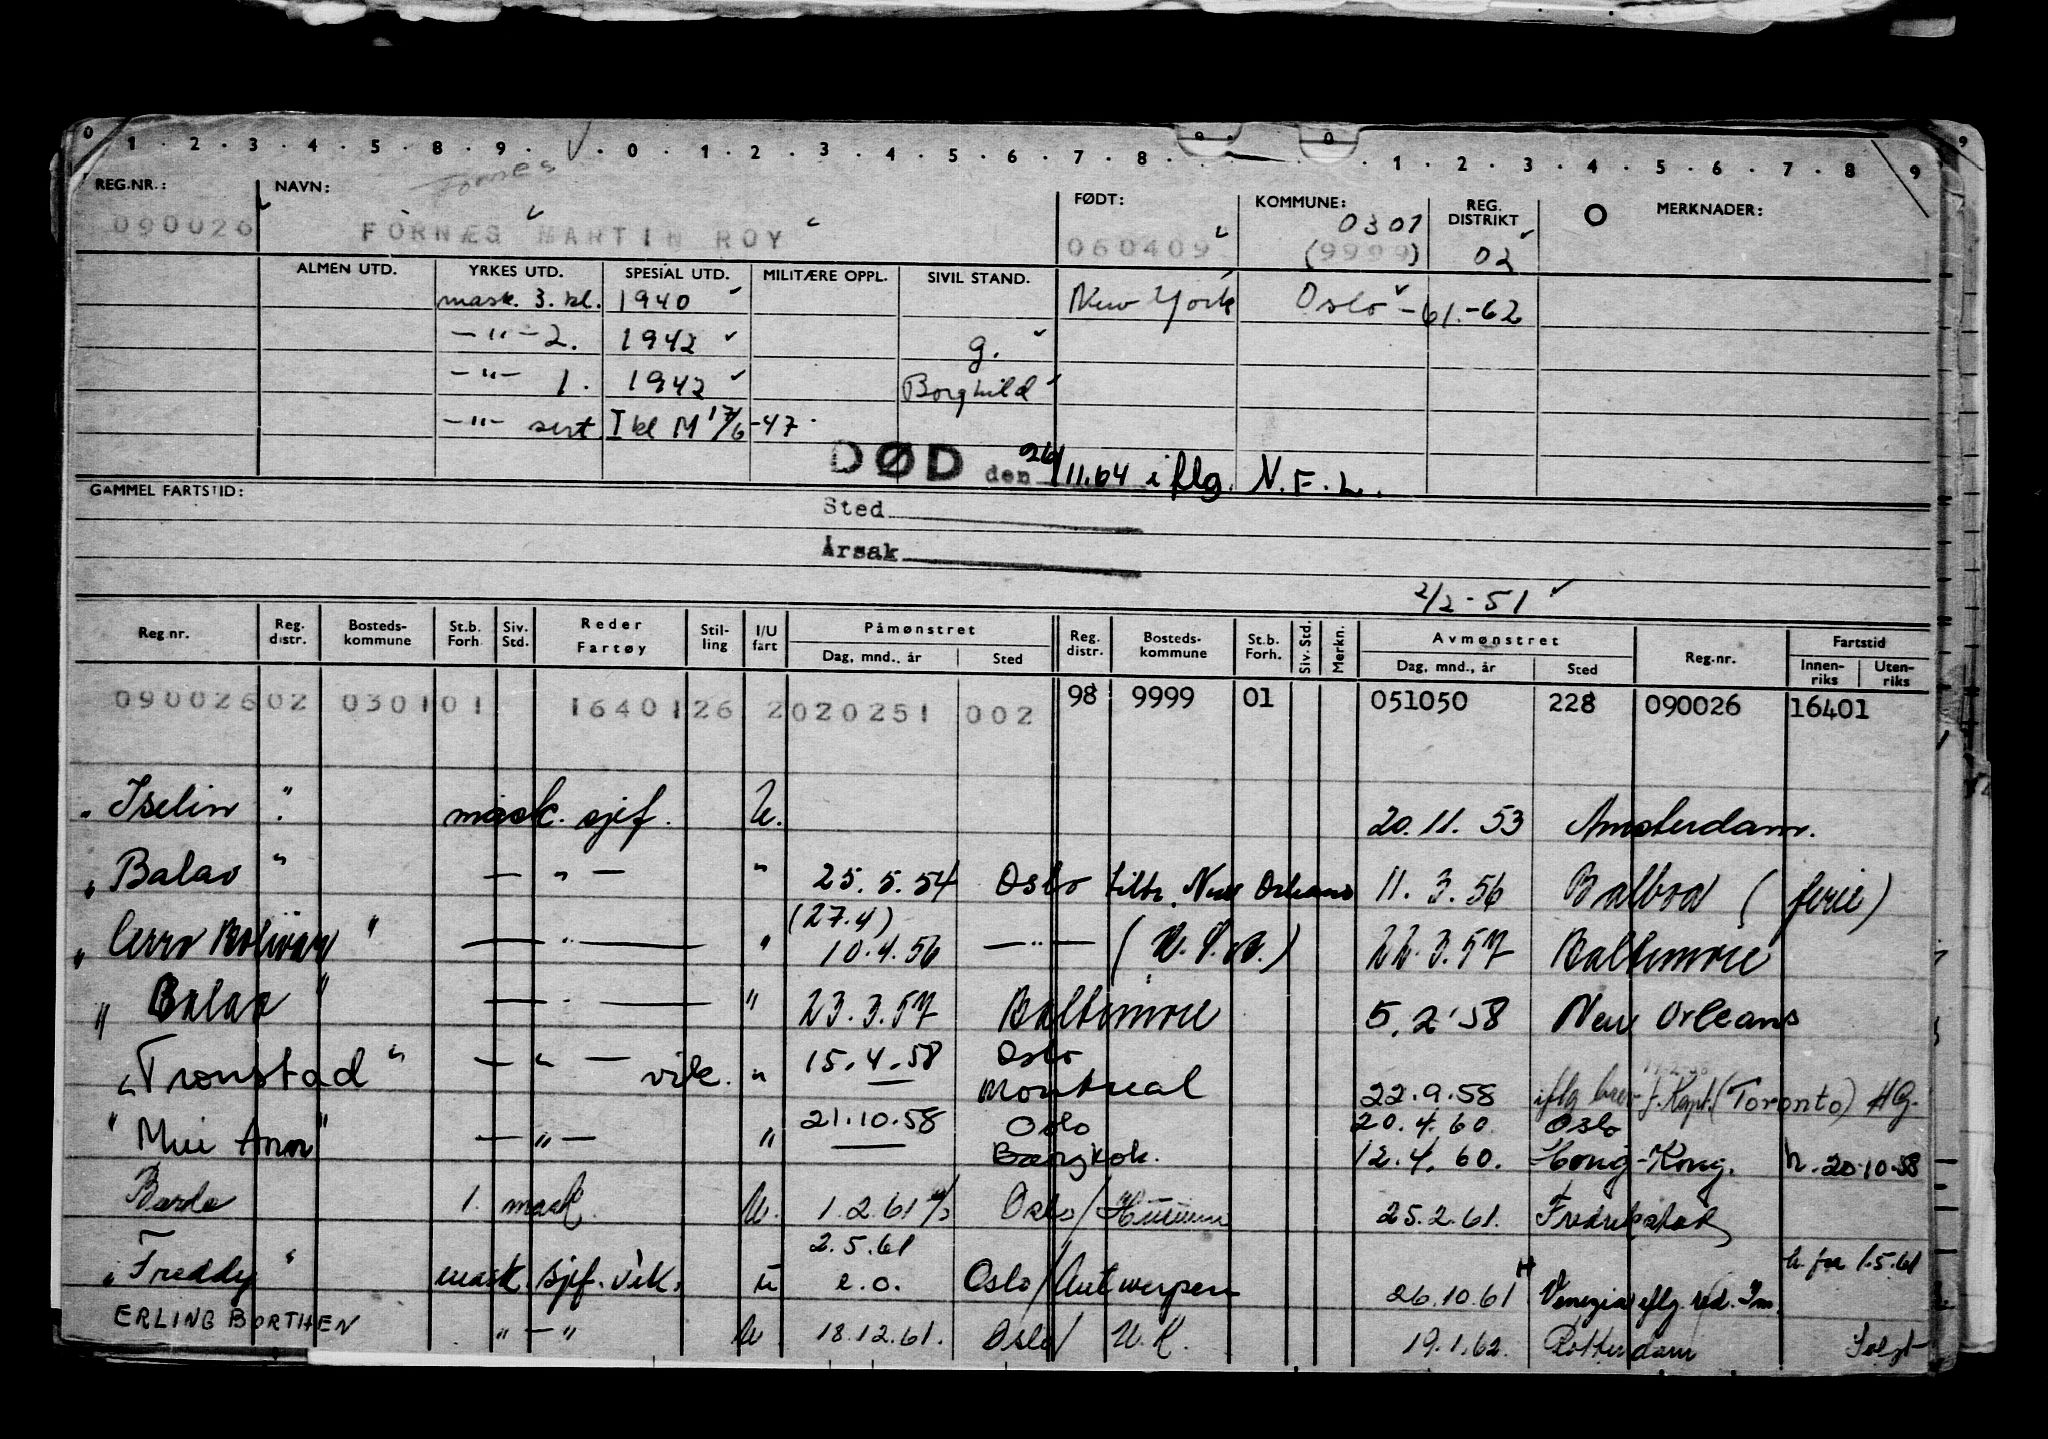 0 1 . 2 . 3 . 4 . 5 . 8 . 9 . . 0 . 1 . 2 . 3 . 4 . 5 . 6 . 7 . 8 . 9 . 0 . 1 . 2 . 3 . 4 . 5 . 6 . 7 . 8 . 9
Fornes
REG.NR.: NAVN: FØDT: KOMMUNE: REG. DISTRIKT O MERKNADER:
090026 FORNÆS MARTIN ROY 060409 0301 (9999) 02
ALMEN UTD. YRKES UTD. SPESIAL UTD. MILITÆRE OPPL. SIVIL STAND.
mask. 3. kl. 1940 New York Oslo -61.-62
-"- 2. 1942 g.
-"- 1. 1942 Borghild
-"- sert. I kl M 17/6-47.
DØD den 26/11.64 iflg. N.F.L.
GAMMEL FARTSTID:
Sted
Årsak
2/2-51
Reg.nr. Reg. distr. Bosteds-kommune St.b. Forh. Siv. Std. Reder Fartøy Stil-ling I/U fart Påmønstret Reg. distr. Bosteds-kommune St.b. Forh. Siv. Std. Merkn. Avmønstret Reg.nr. Fartstid
Dag, mnd., år Sted Dag, mnd., år Sted Innen-riks Uten-riks
090026 02 0301 01 16401 26 2 020251 002 98 9999 01 051050 228 090026 16401
" Iselin " mask. sjef. U. 20.11.53 Amsterdam.
" Balao " -"- " 25.5.54 Oslo tiltr. New Orleans 11.3.56 Balboa (ferie)
(27.4)
" Cerro Bolivar " -"- " 10.4.56 -"- (U.S.A.) 22.3.57 Baltimore
" Balao " -"- " 23.3.57 Baltimore 5.2.58 New Orleans
" Tronstad " -"- vik. " 15.4.58 Oslo
Montreal 22.9.58 iflg brev f. Kapt. (Toronto) HG.
" Mui Ann " -"- " 21.10.58 Oslo 20.4.60 Oslo
Bangkok. 12.4.60. Hong-Kong. h. 20.10.58
Bardo 1. mask. U. 1.2.61 Oslo/ 25.2.61. Fredrikstad
2.5.61 h. fra 1.5.61
" Freddy " mask. sjef. vik. u e.o. Oslo/Antwerpen 26.10.61 H Venezia iflg. red. Im.
ERLING BORTHEN "-" U 18.12.61. Oslo/ U.K. 19.1.62. Rotterdam Solgt